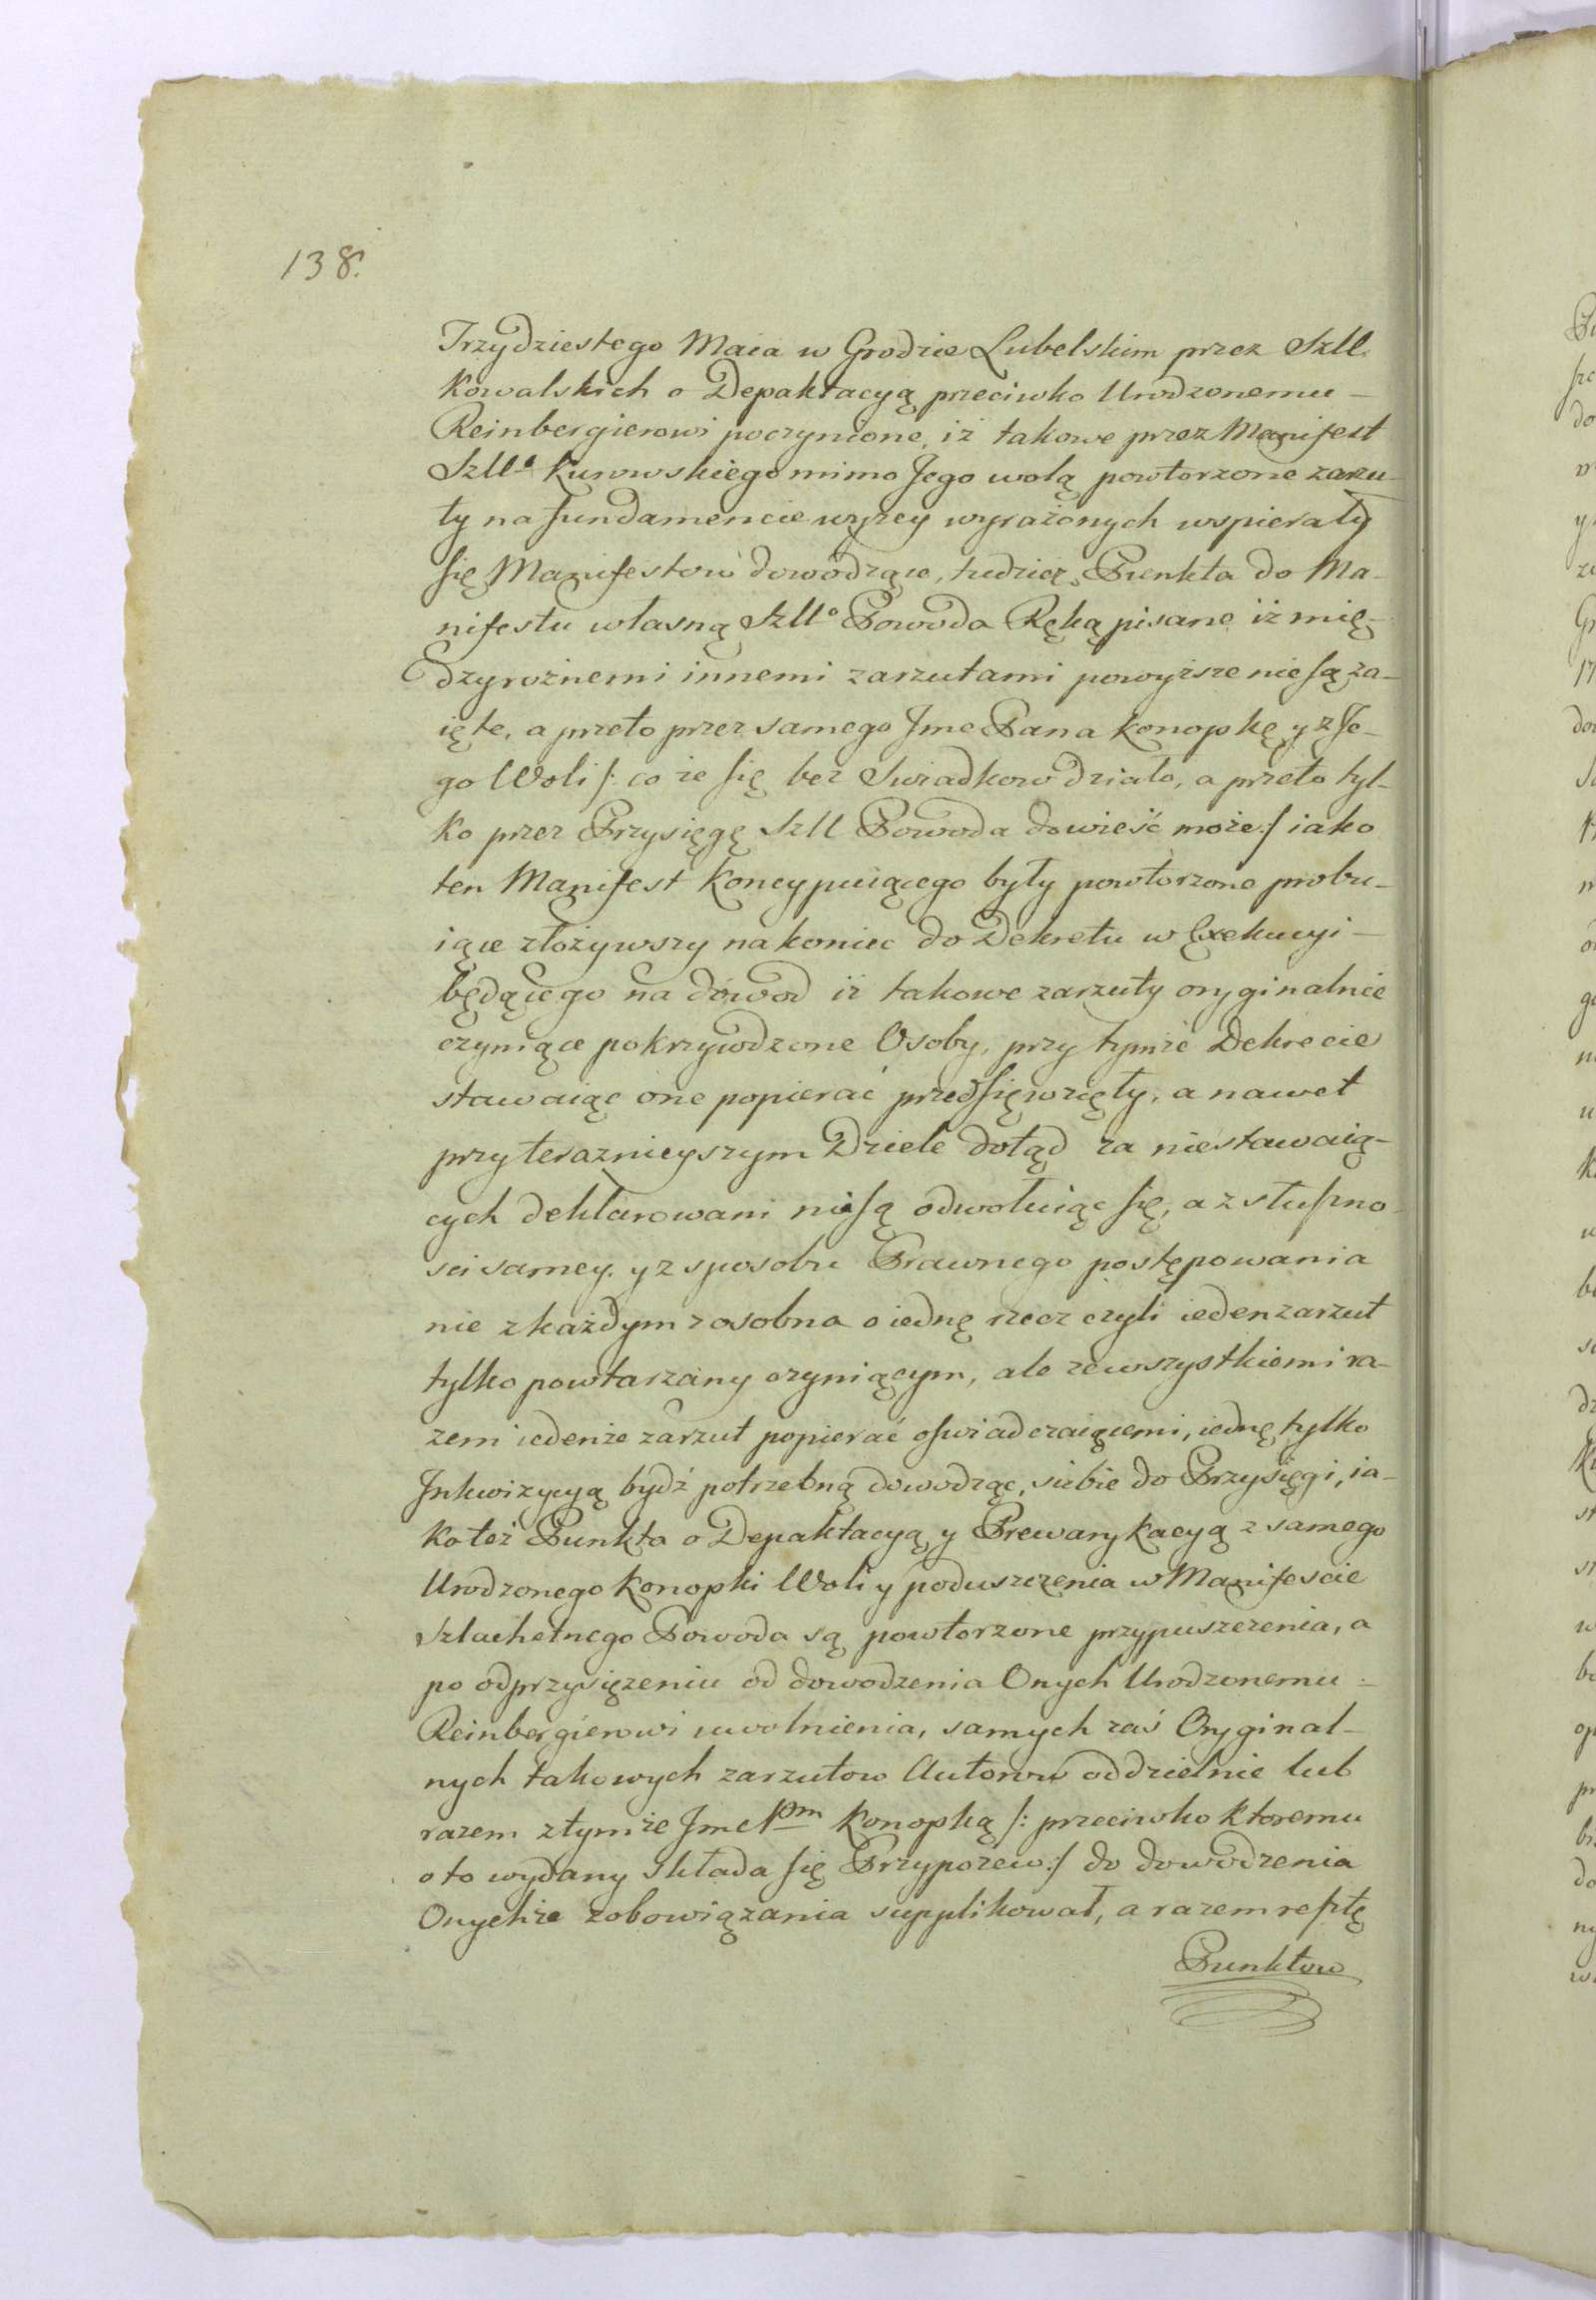 138.
Trzydziestego Maia w Grodzie Lubelskim przez Szll.
Kowalskich o Depaktacyą przeciwko Urodzonemu –
Reinbergierowi poczynione, iż takowe przez Manifest
Szllo Kurowskiego mimo Jego wolą powtorzone zarzu-
ty na fundamencie wyżey wyrażonych wspierały
się Manifestow dowodzące, tudzież Punkta do Ma-
nifestu własną Szllo Powoda Ręką pisane iż mię-
dzy rożnemi innemi zarzutami powyższe nie są za-
ięte, a przeto przez samego Jmc Pana Konopkę y z Je-
go Woli /: co że się bez Swiadkow działo, a przeto tyl-
ko przez Przysięgę Szll Powoda dowieść może :/ iako
ten Manifest koncypuiącego były powtorzone probu-
iące złożywszy nakoniec do Dekretu w Exekucyi –
będącego na dowod iż takowe zarzuty oryginalnie
czyniące pokrzywdzone Osoby, przy tymże Dekrecie
stawaiąc one popierać przedsięwzięły, a nawet
przy teraznieyszym Dziele dotąd za niestawaią-
cych deklarowani nie są odwołuiąc się, a z słuszno-
sci samey y z sposobu Prawnego postępowania
nie z każdym z osobna o iednę rzecz czyli ieden zarzut
tylko powtarzany czyniącym, ale ze wszystkiemi ra-
zem iedenże zarzut popierać oswiadczaiącemi, iednę tylko
Inkwizycyą bydź potrzebną dowodząc, siebie do Przysięgi, ia-
ko też Punkta o Depaktacyą y Prewarykacyą z samego
Urodzonego Konopki Woli y poduszczenia w Manifescie
Szlachetnego Powoda są powtorzone przypuszczenia, a
po odprzysiężeniu od dowodzenia Onych Urodzonemu
Reinbergierowi uwolnienia, samych zaś Oryginal-
nych takowych zarzutow Autorow oddzielnie lub
razem z tymże Jmc Pm Konopką /: przeciwko ktoremu
o to wydany składa się Przypozew :/ do dowodzenia
Onychże zobowiązania supplikował, a razem resztę
Punktow